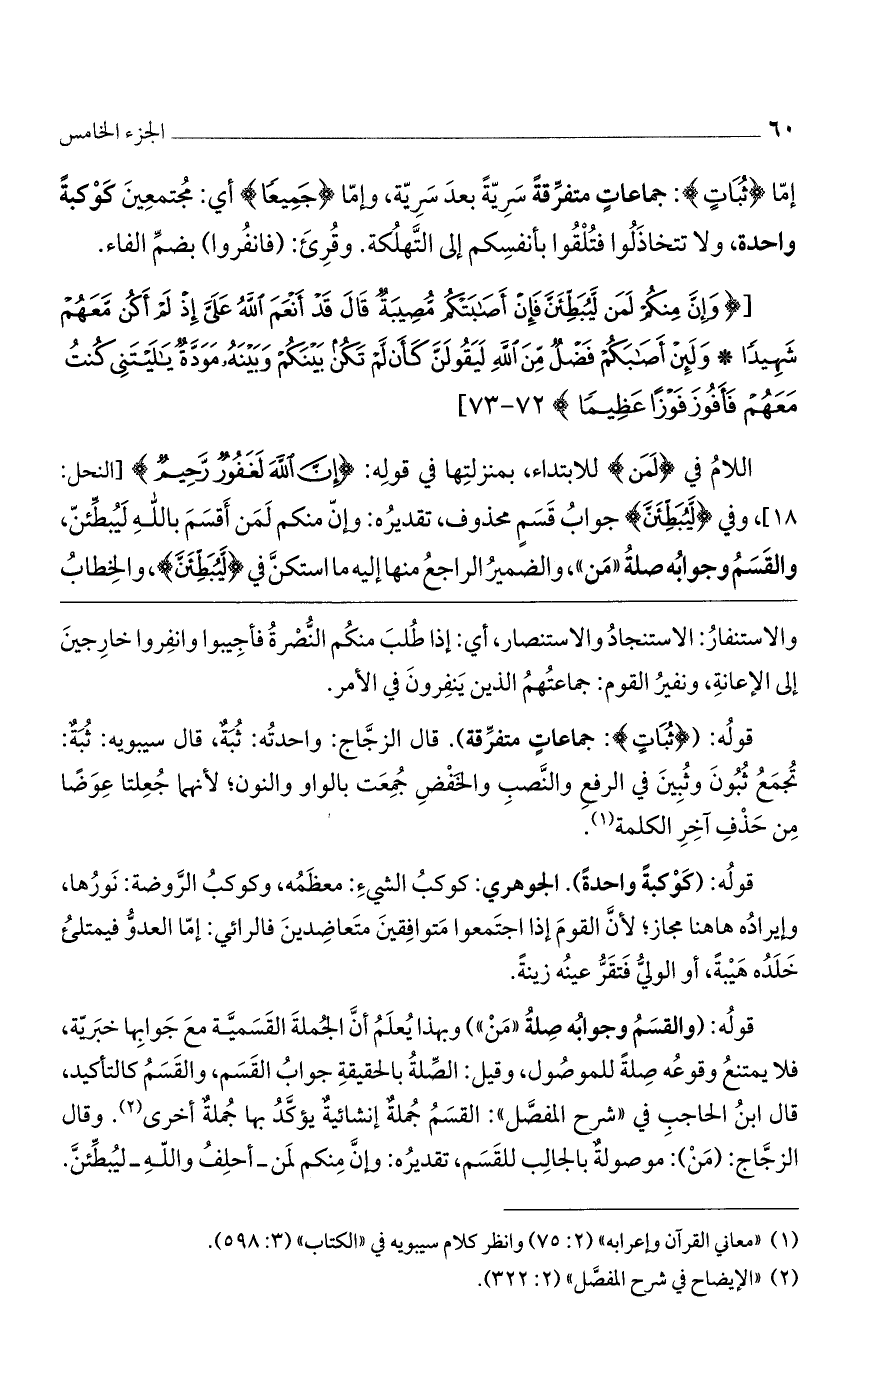 ٦٠ الجزء الخامس
إمّا ﴿ثُبَاتٍ﴾: جماعاتٍ متفرِّقةً سَرِيّةً بعدَ سَرِيّة، وإمّا ﴿جَمِيعًا﴾ أي: مُجتمعِينَ كَوْكبةً
واحدة، ولا تتخاذَلُوا فتُلْقُوا بأنفسِكم إلى التَّهلُكة. وقُرِئَ: (فانفُروا) بضمِّ الفاء.
[﴿وَإِنَّ مِنكُمْ لَمَن لَّيُبَطِّئَنَّ فَإِنْ أَصَابَتْكُم مُّصِيبَةٌ قَالَ قَدْ أَنْعَمَ ٱللَّهُ عَلَيَّ إِذْ لَمْ أَكُن مَّعَهُمْ
شَهِيدًا * وَلَئِنْ أَصَٰبَكُمْ فَضْلٌ مِّنَ ٱللَّهِ لَيَقُولَنَّ كَأَن لَّمْ تَكُنۢ بَيْنَكُمْ وَبَيْنَهُۥ مَوَدَّةٌ يَٰلَيْتَنِى كُنتُ
مَعَهُمْ فَأَفُوزَ فَوْزًا عَظِيمًا ﴾ ٧٢-٧٣]
اللامُ في ﴿لَمَن﴾ للابتداء، بمنزلتِها في قولِه: ﴿إِنَّ ٱللَّهَ لَغَفُورٌ رَّحِيمٌ﴾ [النحل:
١٨]، وفي ﴿لَّيُبَطِّئَنَّ﴾ جوابُ قَسَمٍ محذوف، تقديرُه: وإنّ منكم لَمَن أَقسَمَ باللّـهِ لَيُبطِّئنّ،
والقَسَمُ وجوابُه صلةُ «مَن»، والضميرُ الراجعُ منها إليه ما استكنَّ في ﴿لَّيُبَطِّئَنَّ﴾، والخِطابُ
والاستنفارُ: الاستنجادُ والاستنصار، أي: إذا طُلبَ منكُم النُّصْرةُ فأجِيبوا وانفِروا خارجينَ
إلى الإعانةِ، ونفيرُ القوم: جماعتُهمُ الذين يَنفِرونَ في الأمر.
قولُه: (﴿ثُبَاتٍ﴾: جماعاتٍ متفرِّقة). قال الزجَّاج: واحدتُه: ثُبَةٌ، قال سيبويه: ثُبَةٌ:
تُجمَعُ ثُبُونَ وثُبِينَ في الرفعِ والنَّصبِ والخَفْضِ جُمِعَت بالواو والنون؛ لأنهما جُعِلتا عِوَضًا
مِن حَذْفِ آخِرِ الكلمة(١).
قولُه: (كَوْكبةً واحدةً). الجوهري: كوكبُ الشيءِ: معظَمُه، وكوكبُ الرَّوضة: نَورُها،
وإيرادُه هاهنا مجاز؛ لأنَّ القومَ إذا اجتَمعوا مَتوافِقينَ متَعاضِدينَ فالرائي: إمّا العدوُّ فيمتلئُ
خَلَدُه هَيْبةً، أو الوليُّ فَتقَرُّ عينُه زينةً.
قولُه: (والقسَمُ وجوابُه صِلةُ «مَنْ») وبهذا يُعلَمُ أنَّ الجُملةَ القَسَميّـةَ معَ جَوابِها خبَريّة،
فلا يمتنعُ وقوعُه صِلةً للموصُول، وقيل: الصِّلةُ بالحقيقةِ جوابُ القَسَم، والقَسَمُ كالتأكيد،
قال ابنُ الحاجبِ في «شرح المفصَّل»: القسَمُ جُملةٌ إنشائيةٌ يؤكَّدُ بها جُملةٌ أخرى(٢). وقال
الزجَّاج: (مَنْ): موصولةٌ بالجالِب للقَسَم، تقديرُه: وإنَّ مِنكم لمَن - أحلِفُ واللّـهِ - ليُبطِّئنَّ.
(١) «معاني القرآن وإعرابه» (٢: ٧٥) وانظر كلام سيبويه في «الكتاب» (٣: ٥٩٨).
(٢) «الإيضاح في شرح المفصَّل» (٢: ٣٢٢).